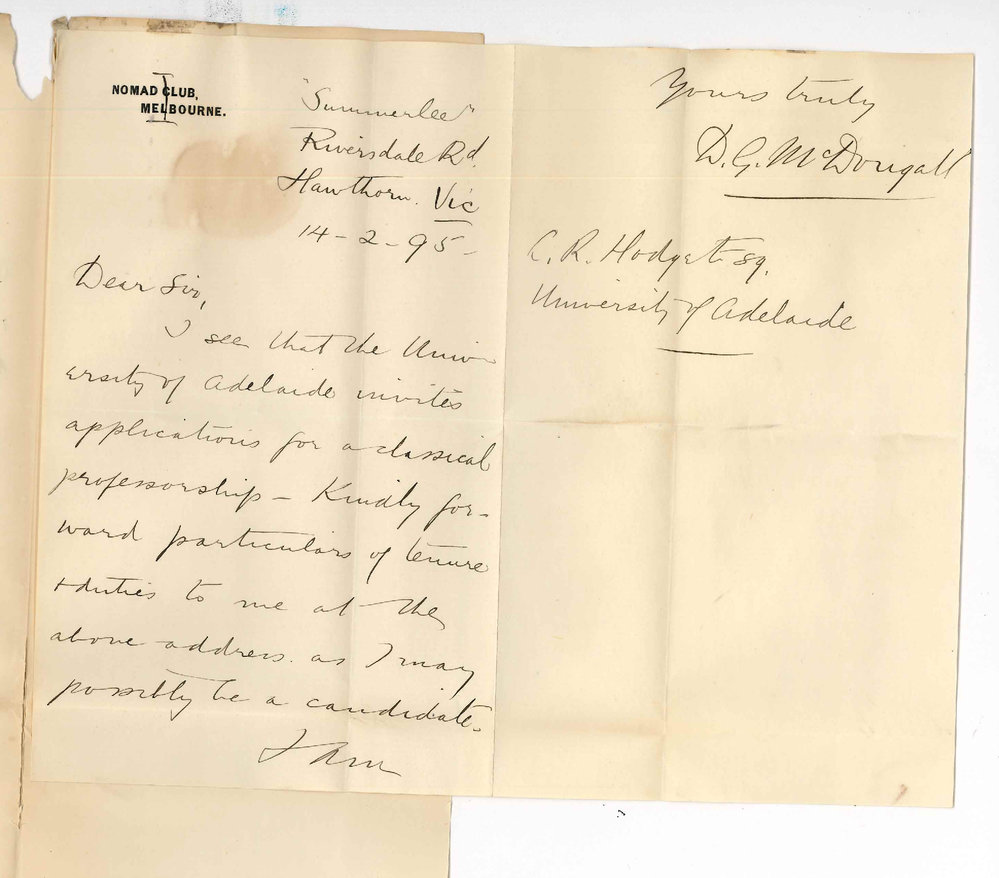 NOMAD CLUB,
MELBOURNE.
"Summerlee"
Riversdale Rd.
Hawthorn. Vic
14-2-95-
Dear Sir,
I see that the Univ-
ersity of Adelaide invites
applications for a classical
professorship - Kindly for-
ward particulars of tenure
+ duties to me at the
above address. as I may
possibly be a candidate.
I am
Yours truly
D. G. McDougall
C. R. Hodge Esq.
University of Adelaide